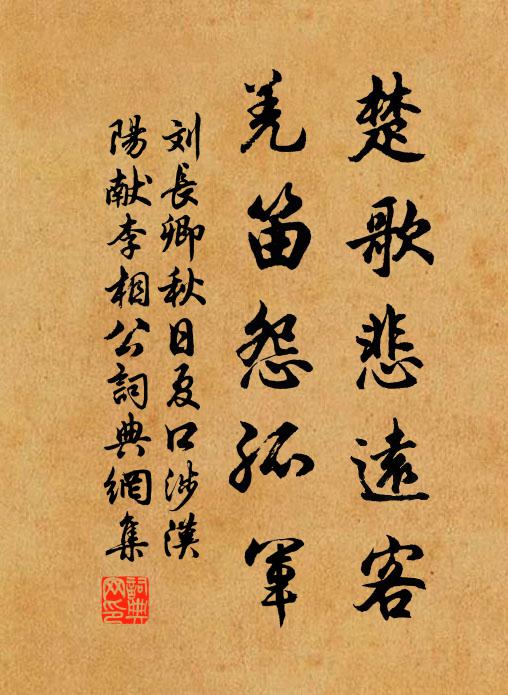 楚歌悲遠客
羌笛怨孤軍
刘長卿秋日夏口涉漢
陽献李相公詞典網集
詞典
网印